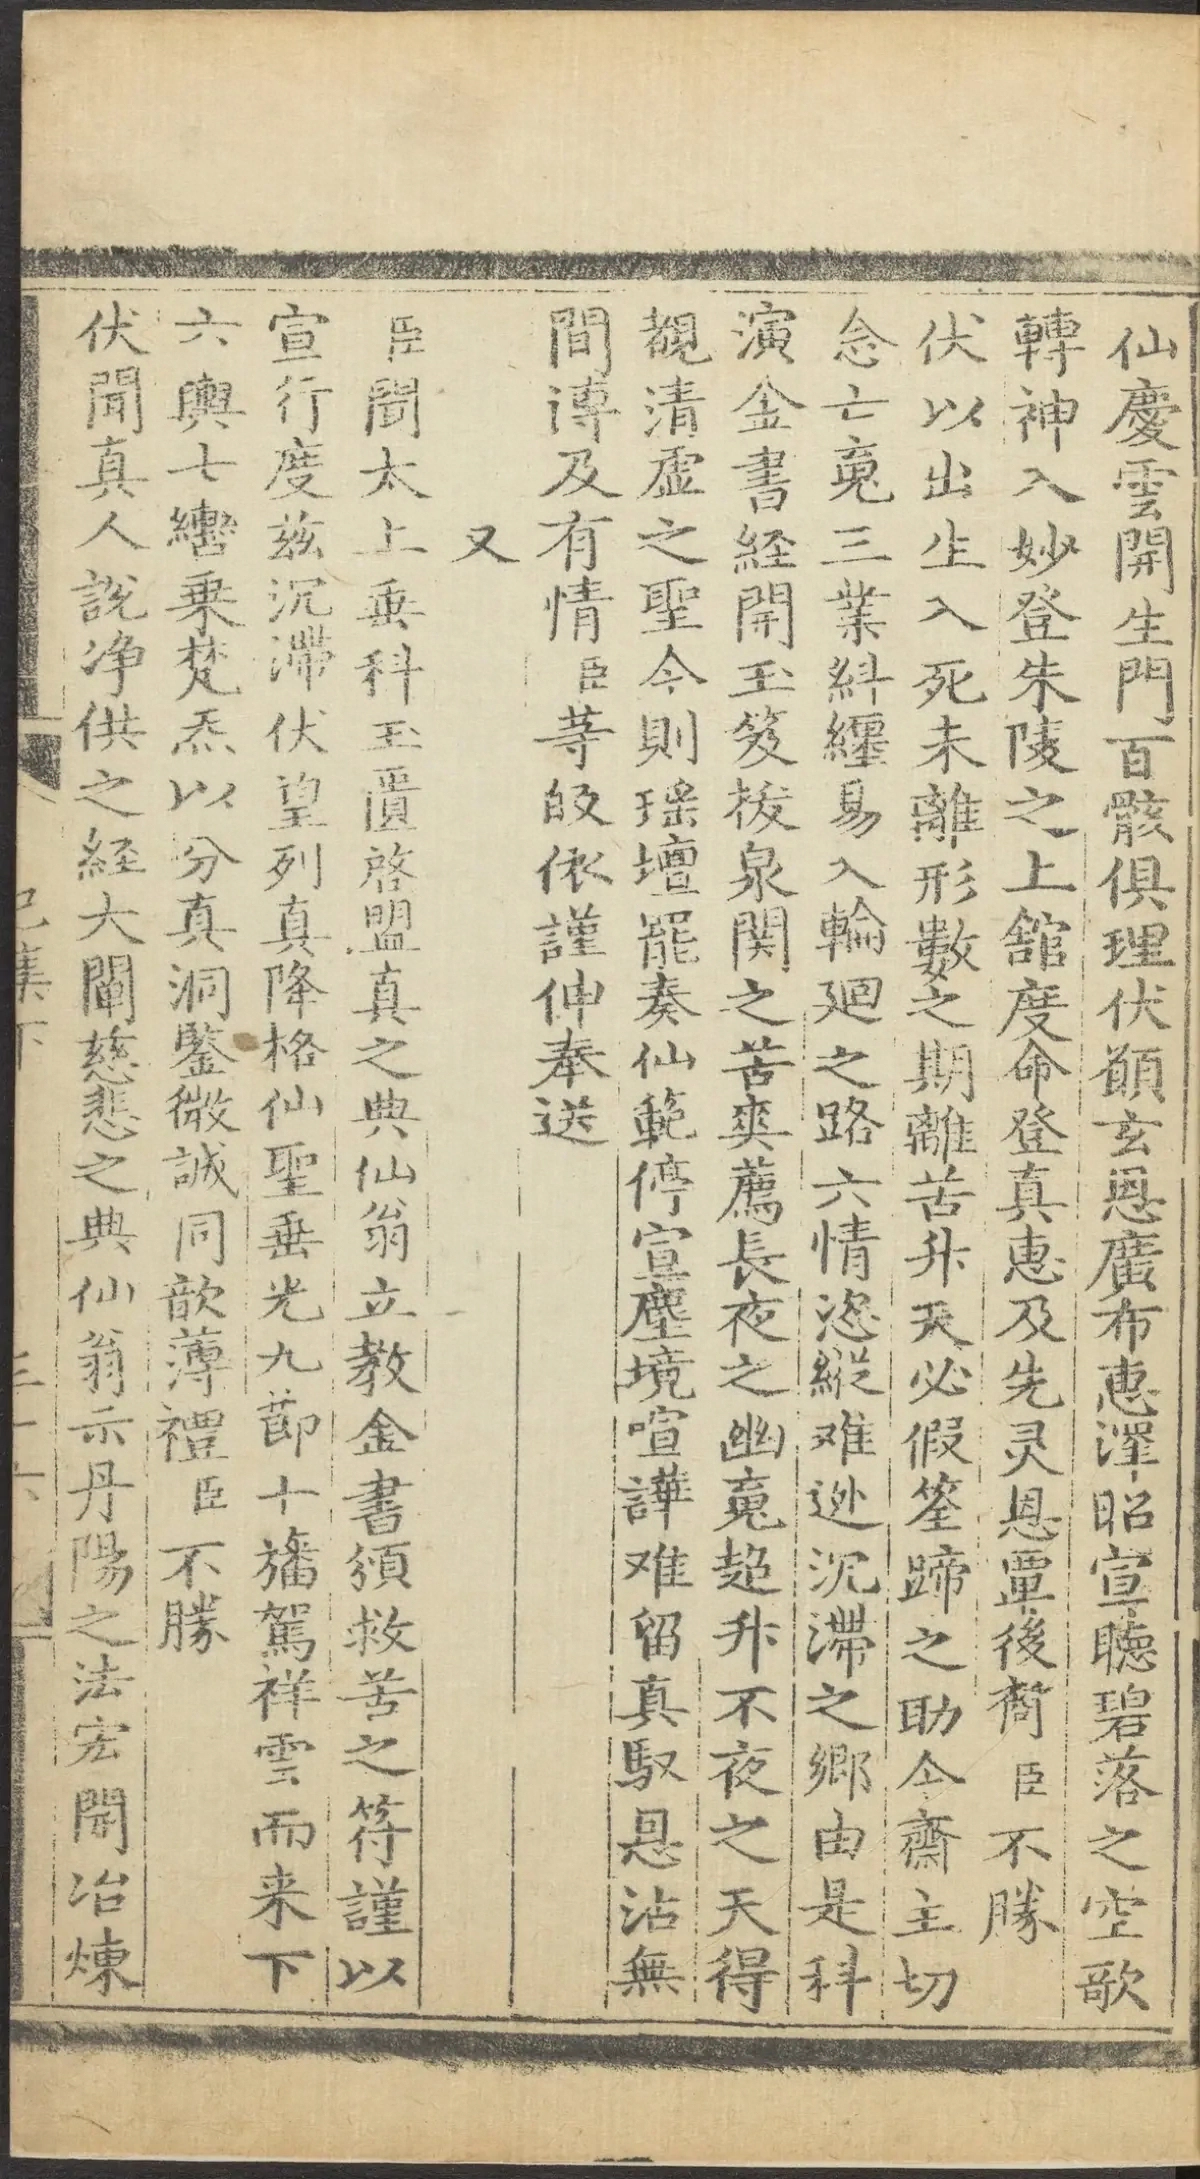 仙慶雲開生門百骸俱理伏願玄恩廣布惠澤昭宣聴碧落之空歌
轉神入妙登朱陵之上舘度命登真惠及先灵恩覃後裔臣不勝
伏以出生入死未離形數之期離苦升天必假筌蹄之助今齋主切
念亡䰟三業糾纒易入輪廻之路六情恣縱难迯沉滯之鄉由是科
演金書経開玉笈拔泉関之苦爽薦長夜之幽䰟超升不夜之天得
覩清虚之聖今則瑶壇罷奏仙範停宣塵境喧譁难留真馭恩沾無
間溥及有情臣䓁皈依謹伸奉送
又
臣聞太上垂科玉匱啓盟真之典仙翁立教金書頒救苦之符謹以
宣行度茲沉滯伏望列真降格仙聖垂光九節十旛駕祥雲而来下
六輿七轡乗梵炁以分真洞鑒微誠同歆薄禮臣不勝
伏聞真人說净供之経大闡慈悲之典仙翁示丹陽之法宏開冶煉